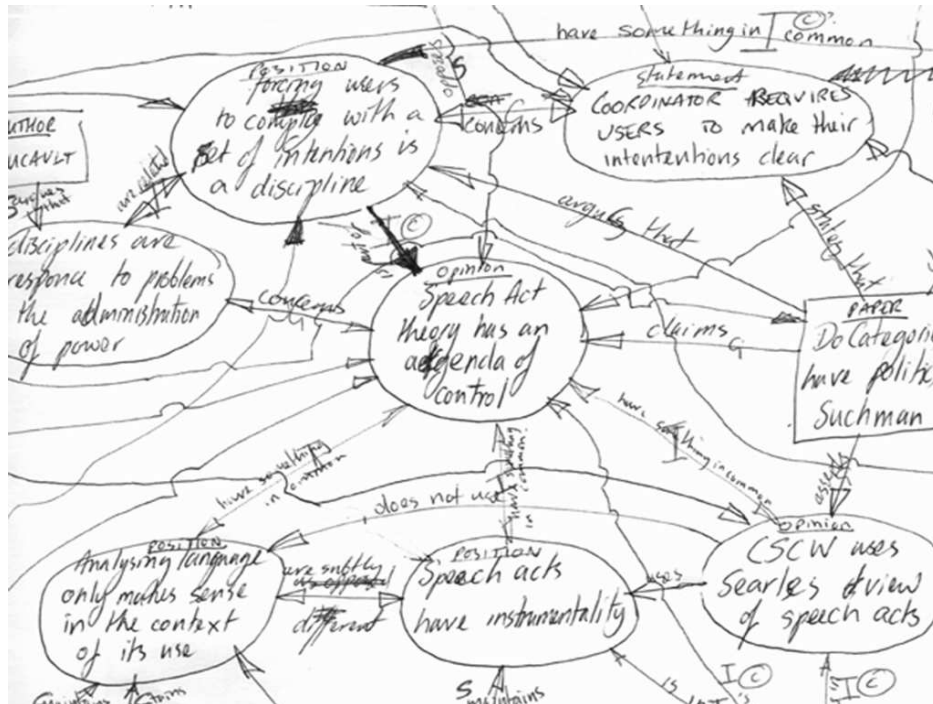 have something in I © common
POSITION
forcing users
to comply with a
set of intentions is
a discipline
spreads
concerns
statement
COORDINATOR REQUIRES
USERS TO make their
intententions clear
UTHOR
UCAULT
argues
that
are related
disciplines are
responce to problems
the administration
of power
concerns
I ©
is part of
argues that
states that
opinion
Speech Act
theory has an
agenda of
control
claims
G
PAPER
Do Categori
have politic
Suchman
have something
in common
have something
in common
have something in common
I
does not use
asse
POSITION
Analysing language
only makes sense
in the context
of its use
are subtly
different
POSITION
Speech acts
have instrumentality
uses
opinion
CSCW uses
Searles view
of speech acts
S
maintains
is
I ©
I ©